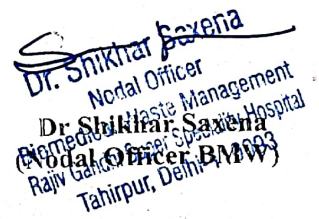 Dr. Shikhar Saxena
Nodal Officer
Biomedical Waste Management
Rajiv Gandhi Super Speciality Hospital
Tahirpur, Delhi-
Dr Shikhar Saxena
(Nodal Officer BMW)